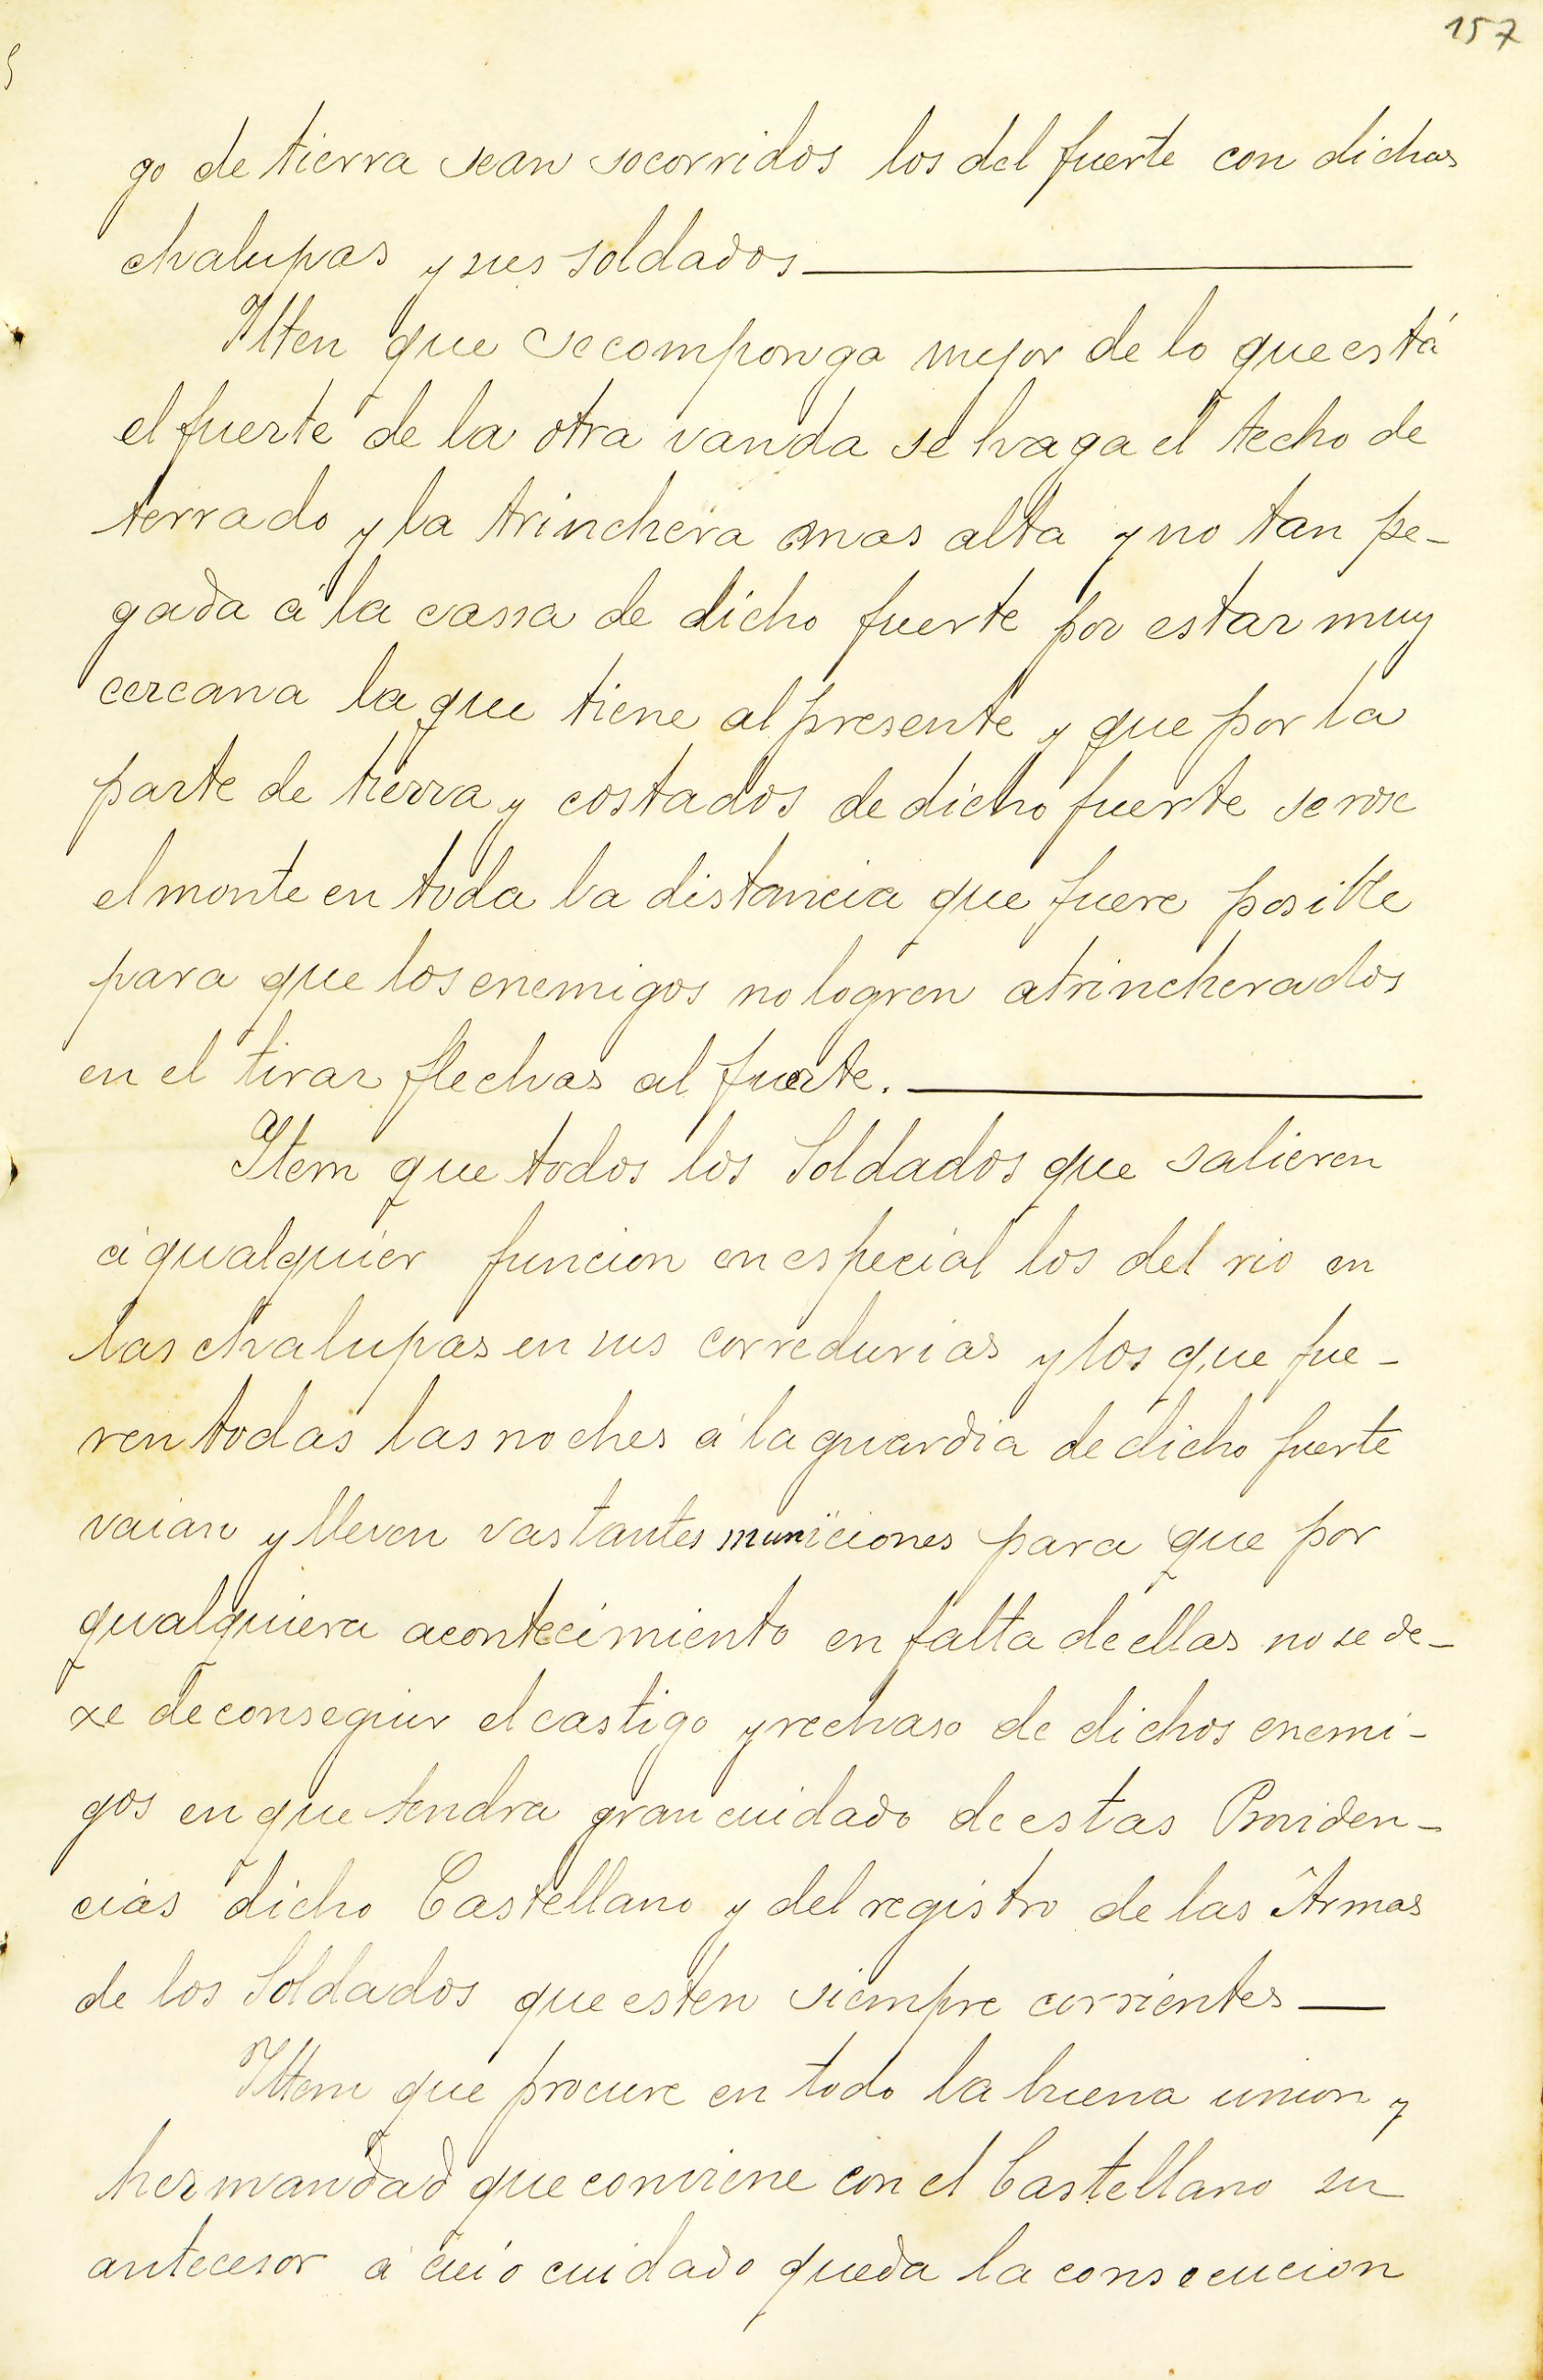 157
go de tierra sean socorridos los del fuerte con dichas
chalupas y sus soldados
Itten que se componga mejor de lo que está
el fuerte de la otra vanda se haga el techo de
terrado y la trinchera mas alta y no tan pe-
gada á la cassa de dicho fuerte por estar muy
cercana la que tiene al presente y que por la
parte de tierra y costados de dicho fuerte se rose
el monte en toda la distancia que fuere posible
para que los enemigos no logren atrincherados
en el tirar flechas al fuerte.
Item que todos los Soldados que salieren
á qualquier funcion en especial los del rio en
las chalupas en sus corredurias y los que fue-
ren todas las noches á la guardia de dicho fuerte
vaian y lleven vastantes municiones para que por
qualquiera acontecimiento en falta de ellas no se de-
xe de conseguir el castigo y rechaso de dichos enemi-
gos en que tendra gran cuidado de estas Providen-
cias dicho Castellano y del registro de las Armas
de los Soldados que esten siempre corrientes
Ittem que procure en todo la buena union y
hermandad que conviene con el Castellano su
antecesor á cuio cuidado queda la consecucion